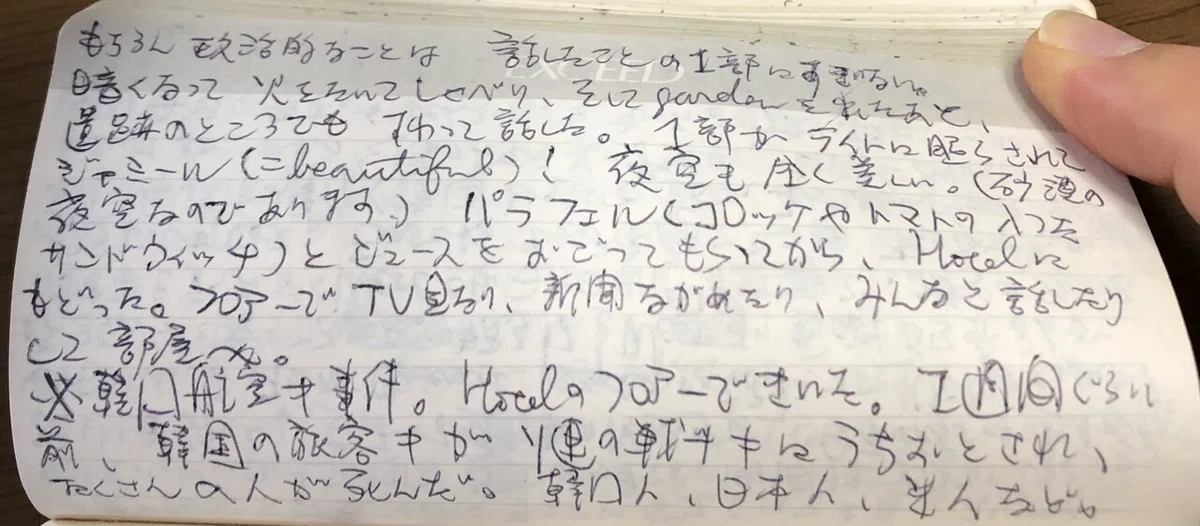 もちろん 政治的なことは 話したことの1部にすぎない。
EXCEED
暗くなって 火をたいてしゃべり、そして gardenを 出たあと、
遺跡のところでも すわって話した。1部が ライトに照らされて
ジャミール(=beautiful)! 夜空も 全く美しい。(砂漠の
夜空なのであります。) パラフェル(コロッケやトマトの入った
サンドウィッチ)と ジュースを おごってもらってから、Hotelに
もどった。フロアーで TV見たり、新聞ながめたり、みんなと話したり
して 部屋へ。
※韓国航空キ事件。Hotelのフロアーできいた。1週間ぐらい
前、韓国の旅客キが ソ連の戦斗キにうちおとされ、
たくさんの人が死んだ。韓国人、日本人、米人など。